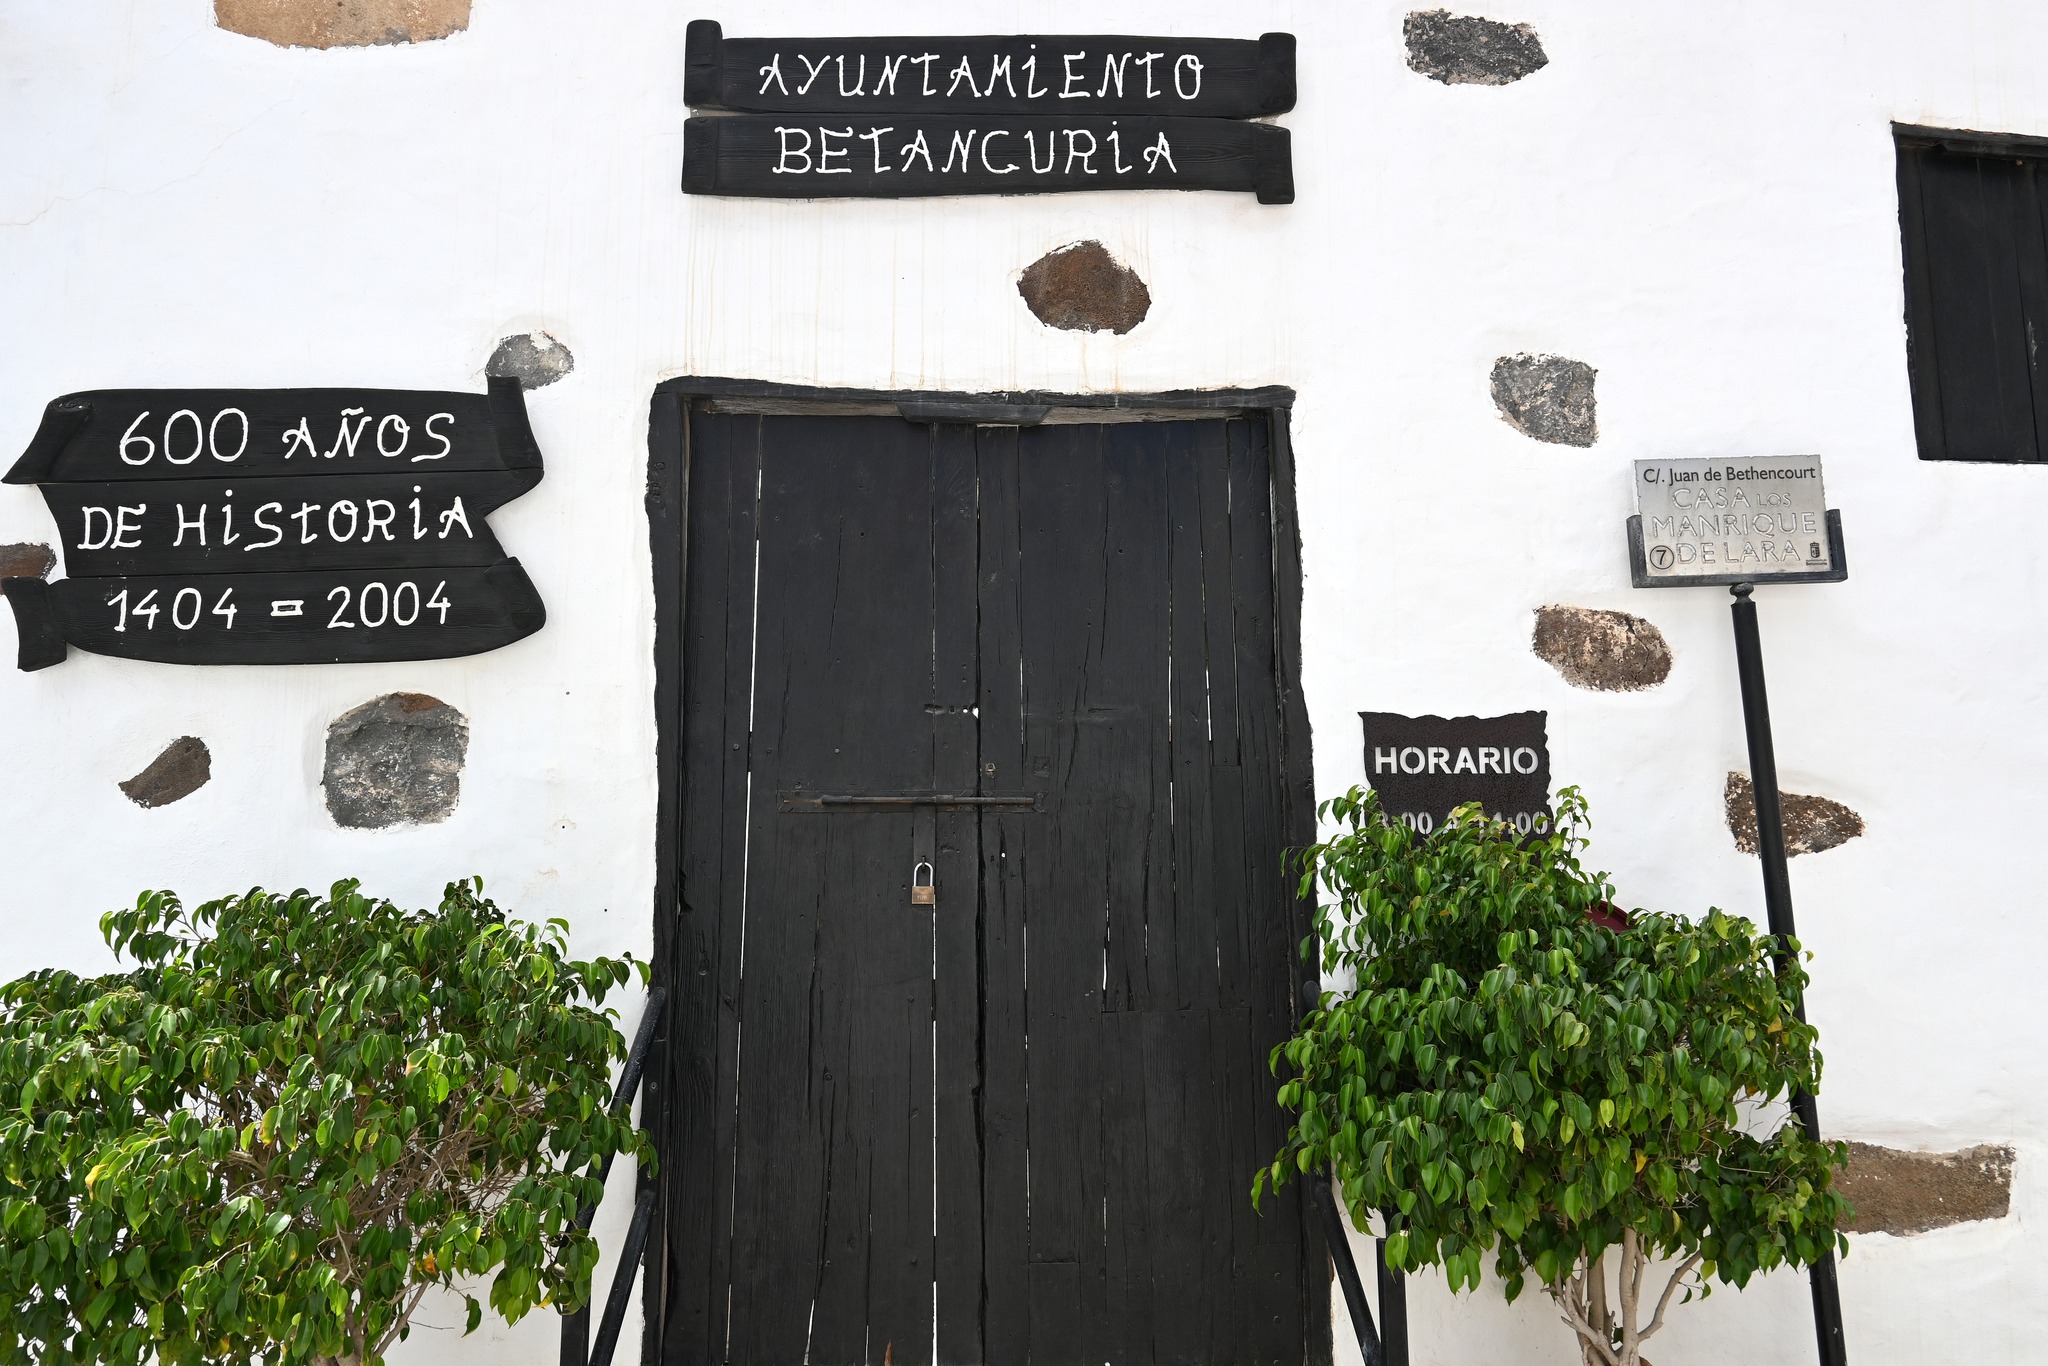 AYUNTAMIENTO
BETANCURIA
600 AÑOS
DE HISTORIA
1404 - 2004
C/. Juan de Bethencourt
CASA LOS
MANRIQUE
7 DE LARA
HORARIO
14:00